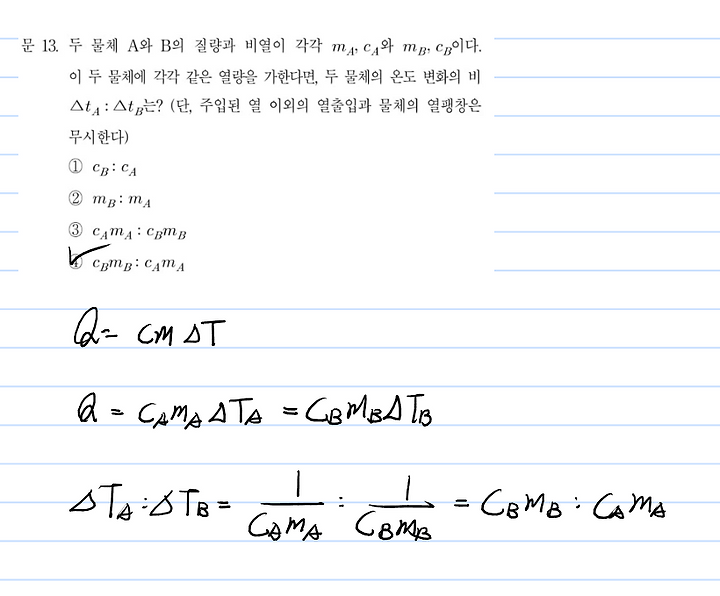 문 13. 두 물체 A와 B의 질량과 비열이 각각 m_A, c_A와 m_B, c_B이다.
이 두 물체에 각각 같은 열량을 가한다면, 두 물체의 온도 변화의 비
Δt_A : Δt_B는? (단, 주입된 열 이외의 열출입과 물체의 열팽창은
무시한다)
① c_B : c_A
② m_B : m_A
③ c_A m_A : c_B m_B
④ c_B m_B : c_A m_A
Q = cm ΔT
Q = C_A m_A ΔT_A = C_B m_B ΔT_B
ΔT_A : ΔT_B = 1/(C_A m_A) : 1/(C_B m_B) = C_B m_B : C_A m_A